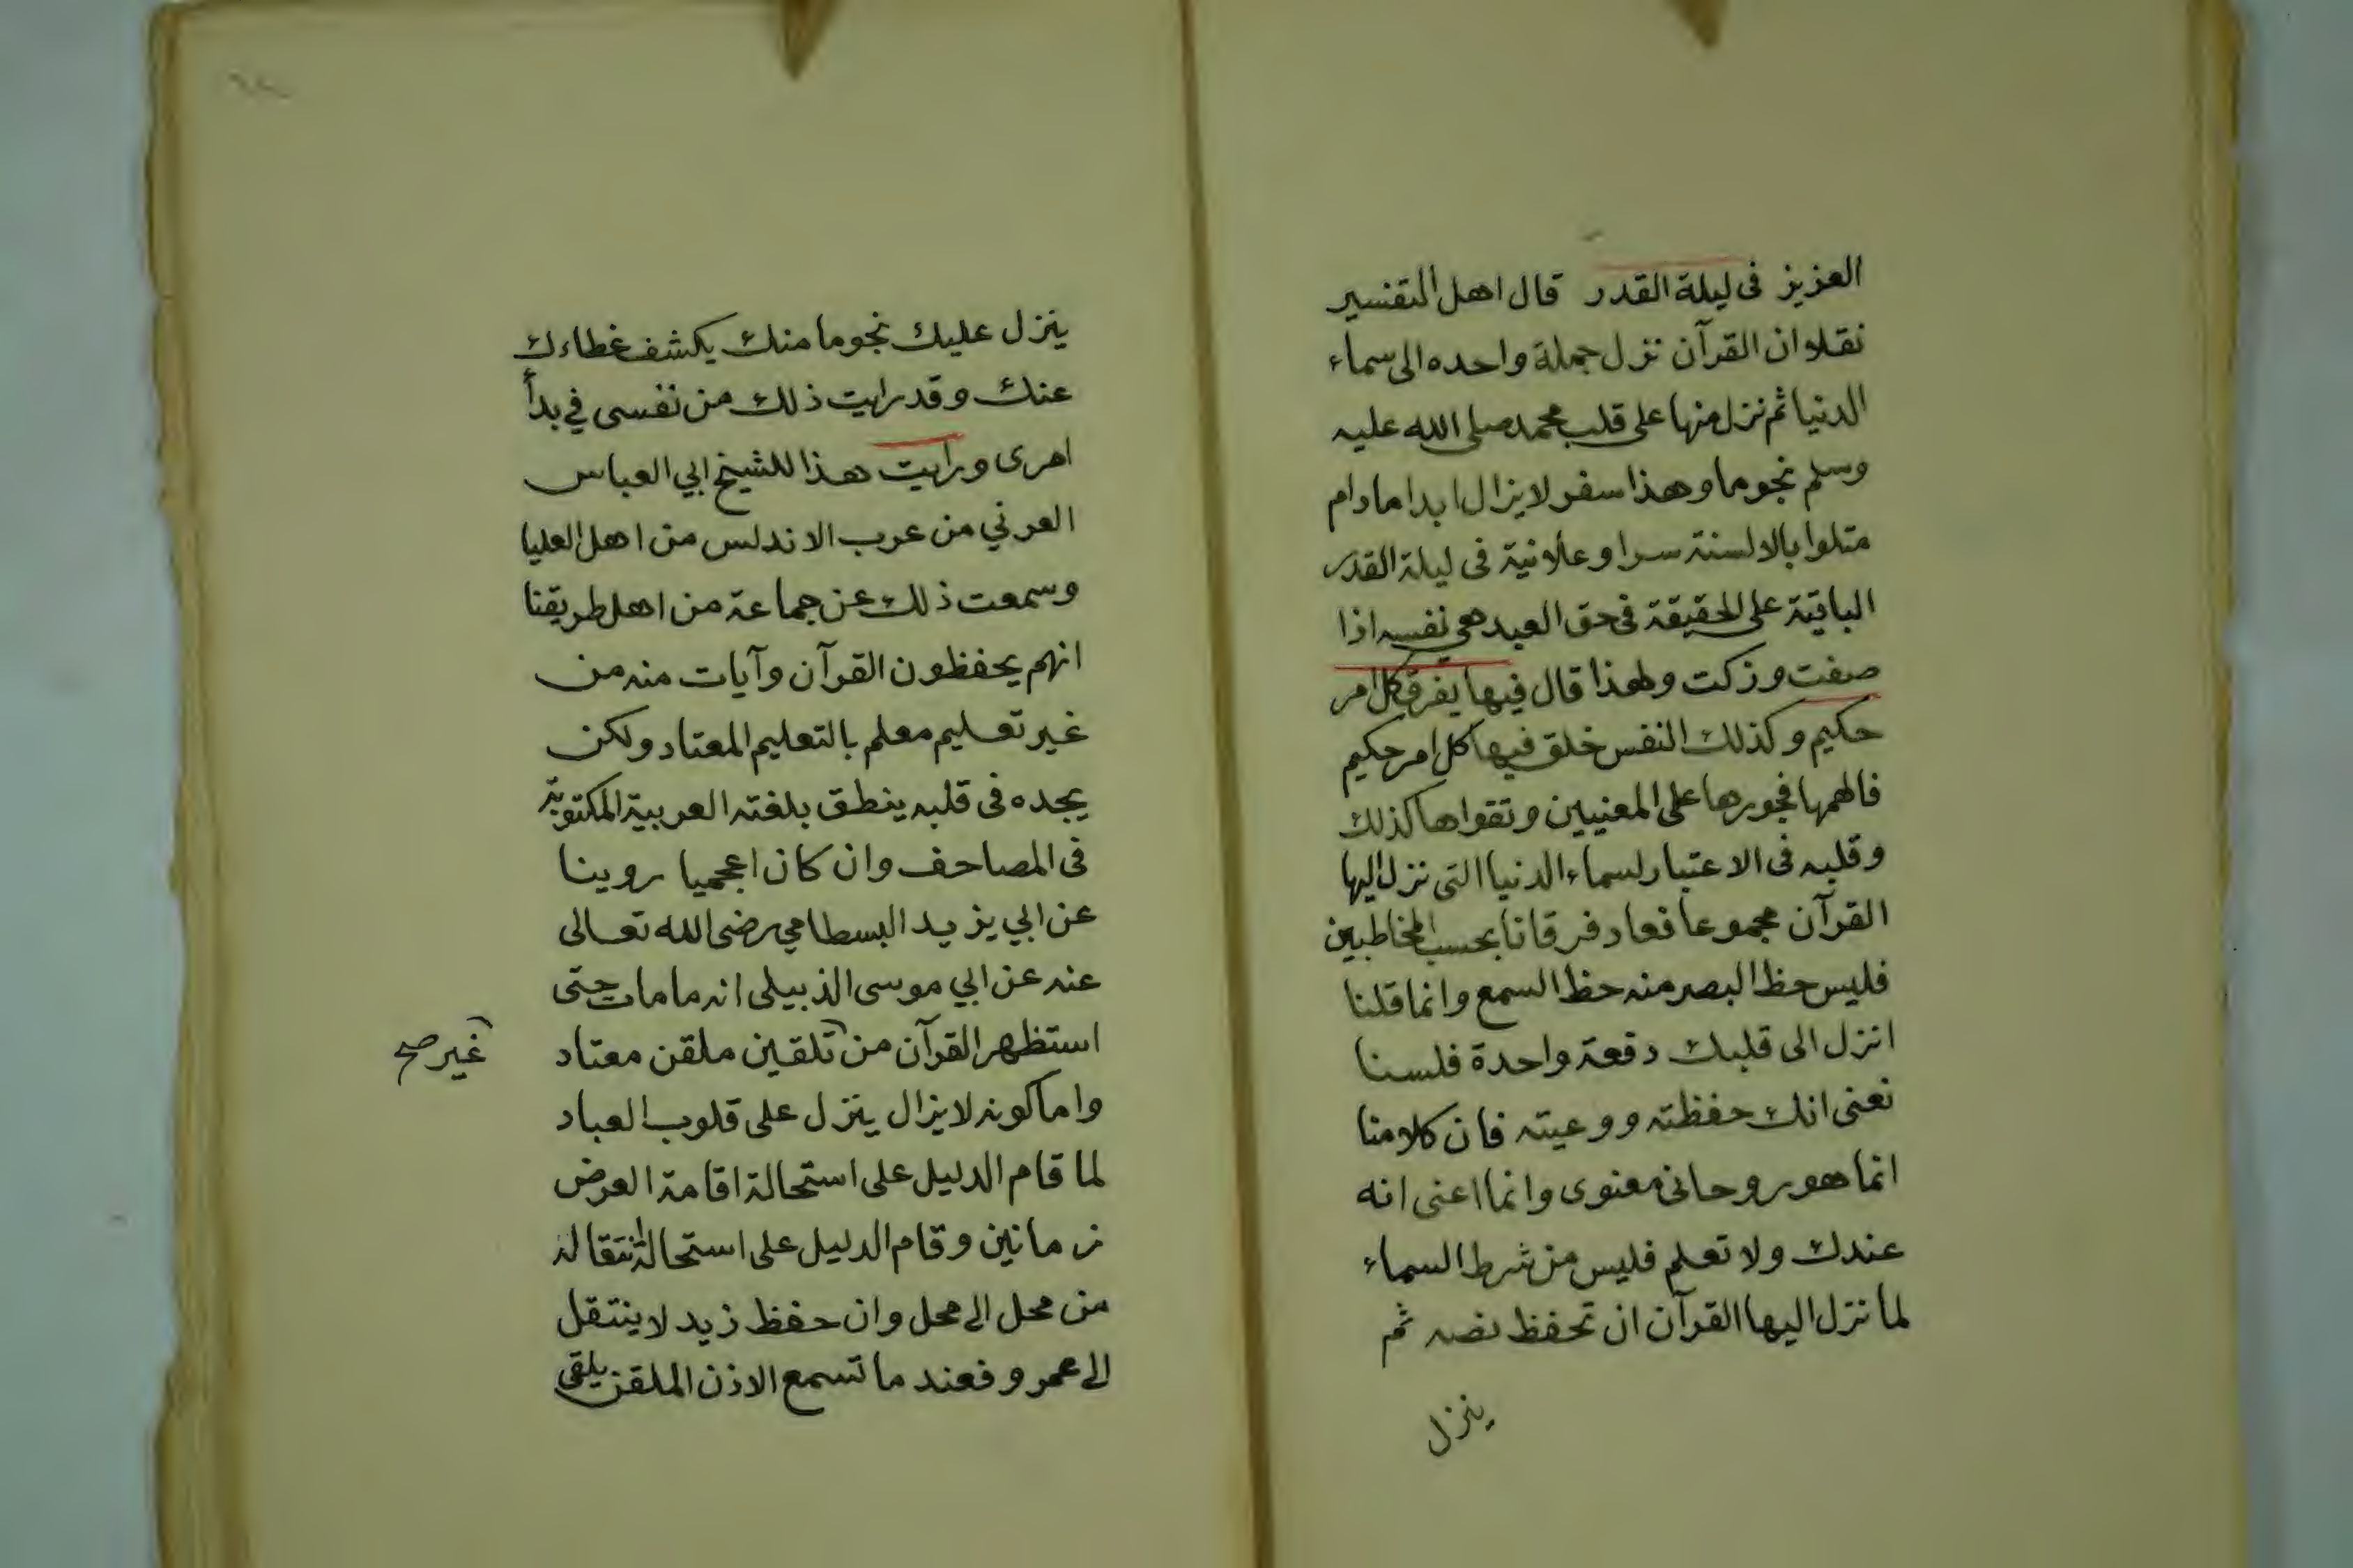 العزيز فى ليلة القدر قال اهل التفسير
نقلا وان القرآن نزل جملة واحده الى سماء
الدنيا ثم نزل منها على قلب محمد صلى الله عليه
وسلم نجوما وهذا سفر لا يزال ابدا ما دام
متلوا بالالسنة سرا وعلانية فى ليلة القدر
الباقية على الحقيقة فى حق العبد هى نفسه اذا
صفت وزكت ولهذا قال فيها يفرق كل امر
حكيم وكذلك النفس خلق فيها كل امر حكيم
فالهمها فجورها على المعنيين وتقواها كذلك
وقلبه فى الاعتبار لسماء الدنيا التى نزل اليها
القرآن مجموعا فعاد فرقانا بحسب المخاطبين
فليس حظ البصر منه حظ السمع وانما قلنا
انزل الى قلبك دفعة واحدة فلسنا
نعنى انك حفظته ووعيته فان كلامنا
انما هو روحانى معنوى وانما اعنى انه
عندك ولا تعلم فليس من شرط السماء
لما نزل اليها القرآن ان تحفظ نصه ثم
ينزل
ينزل عليك نجوما منك يكشف غطاءك
عنك وقد رايت ذلك من نفسى في بدأ
امرى ورايت هذا للشيخ ابي العباس
العرني من عرب الاندلس من اهل العليا
وسمعت ذلك عن جماعة من اهل طريقنا
انهم يحفظون القرآن وآيات منه من
غير تعليم معلم بالتعليم المعتاد ولكن
يجده فى قلبه ينطق بلغته العربية المكتوبة
فى المصاحف وان كان اعجميا روينا
عن ابي يزيد البسطامي رضى الله تعالى
عنه عن ابي موسى الذبيلى انه ما مات حتى
استظهر القرآن من تلقين ملقن معتاد
غير صح
واما كونه لا يزال ينزل على قلوب العباد
لما قام الدليل على استحالة اقامة العرض
زمانين وقام الدليل على استحالة انتقاله
من محل الى محل وان حفظ زيد لا ينتقل
الى عمرو فعند ما تسمع الاذن الملقن يلقى